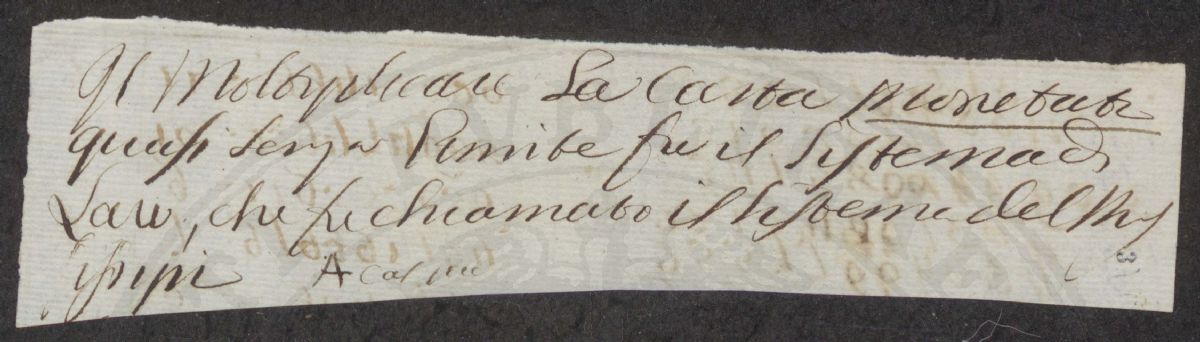 Il Moltiplicare La Carta Monetata
quasi senza Limite fu il Sistema di
Law, che fu chiamato il Sistema del Mis
sisipi